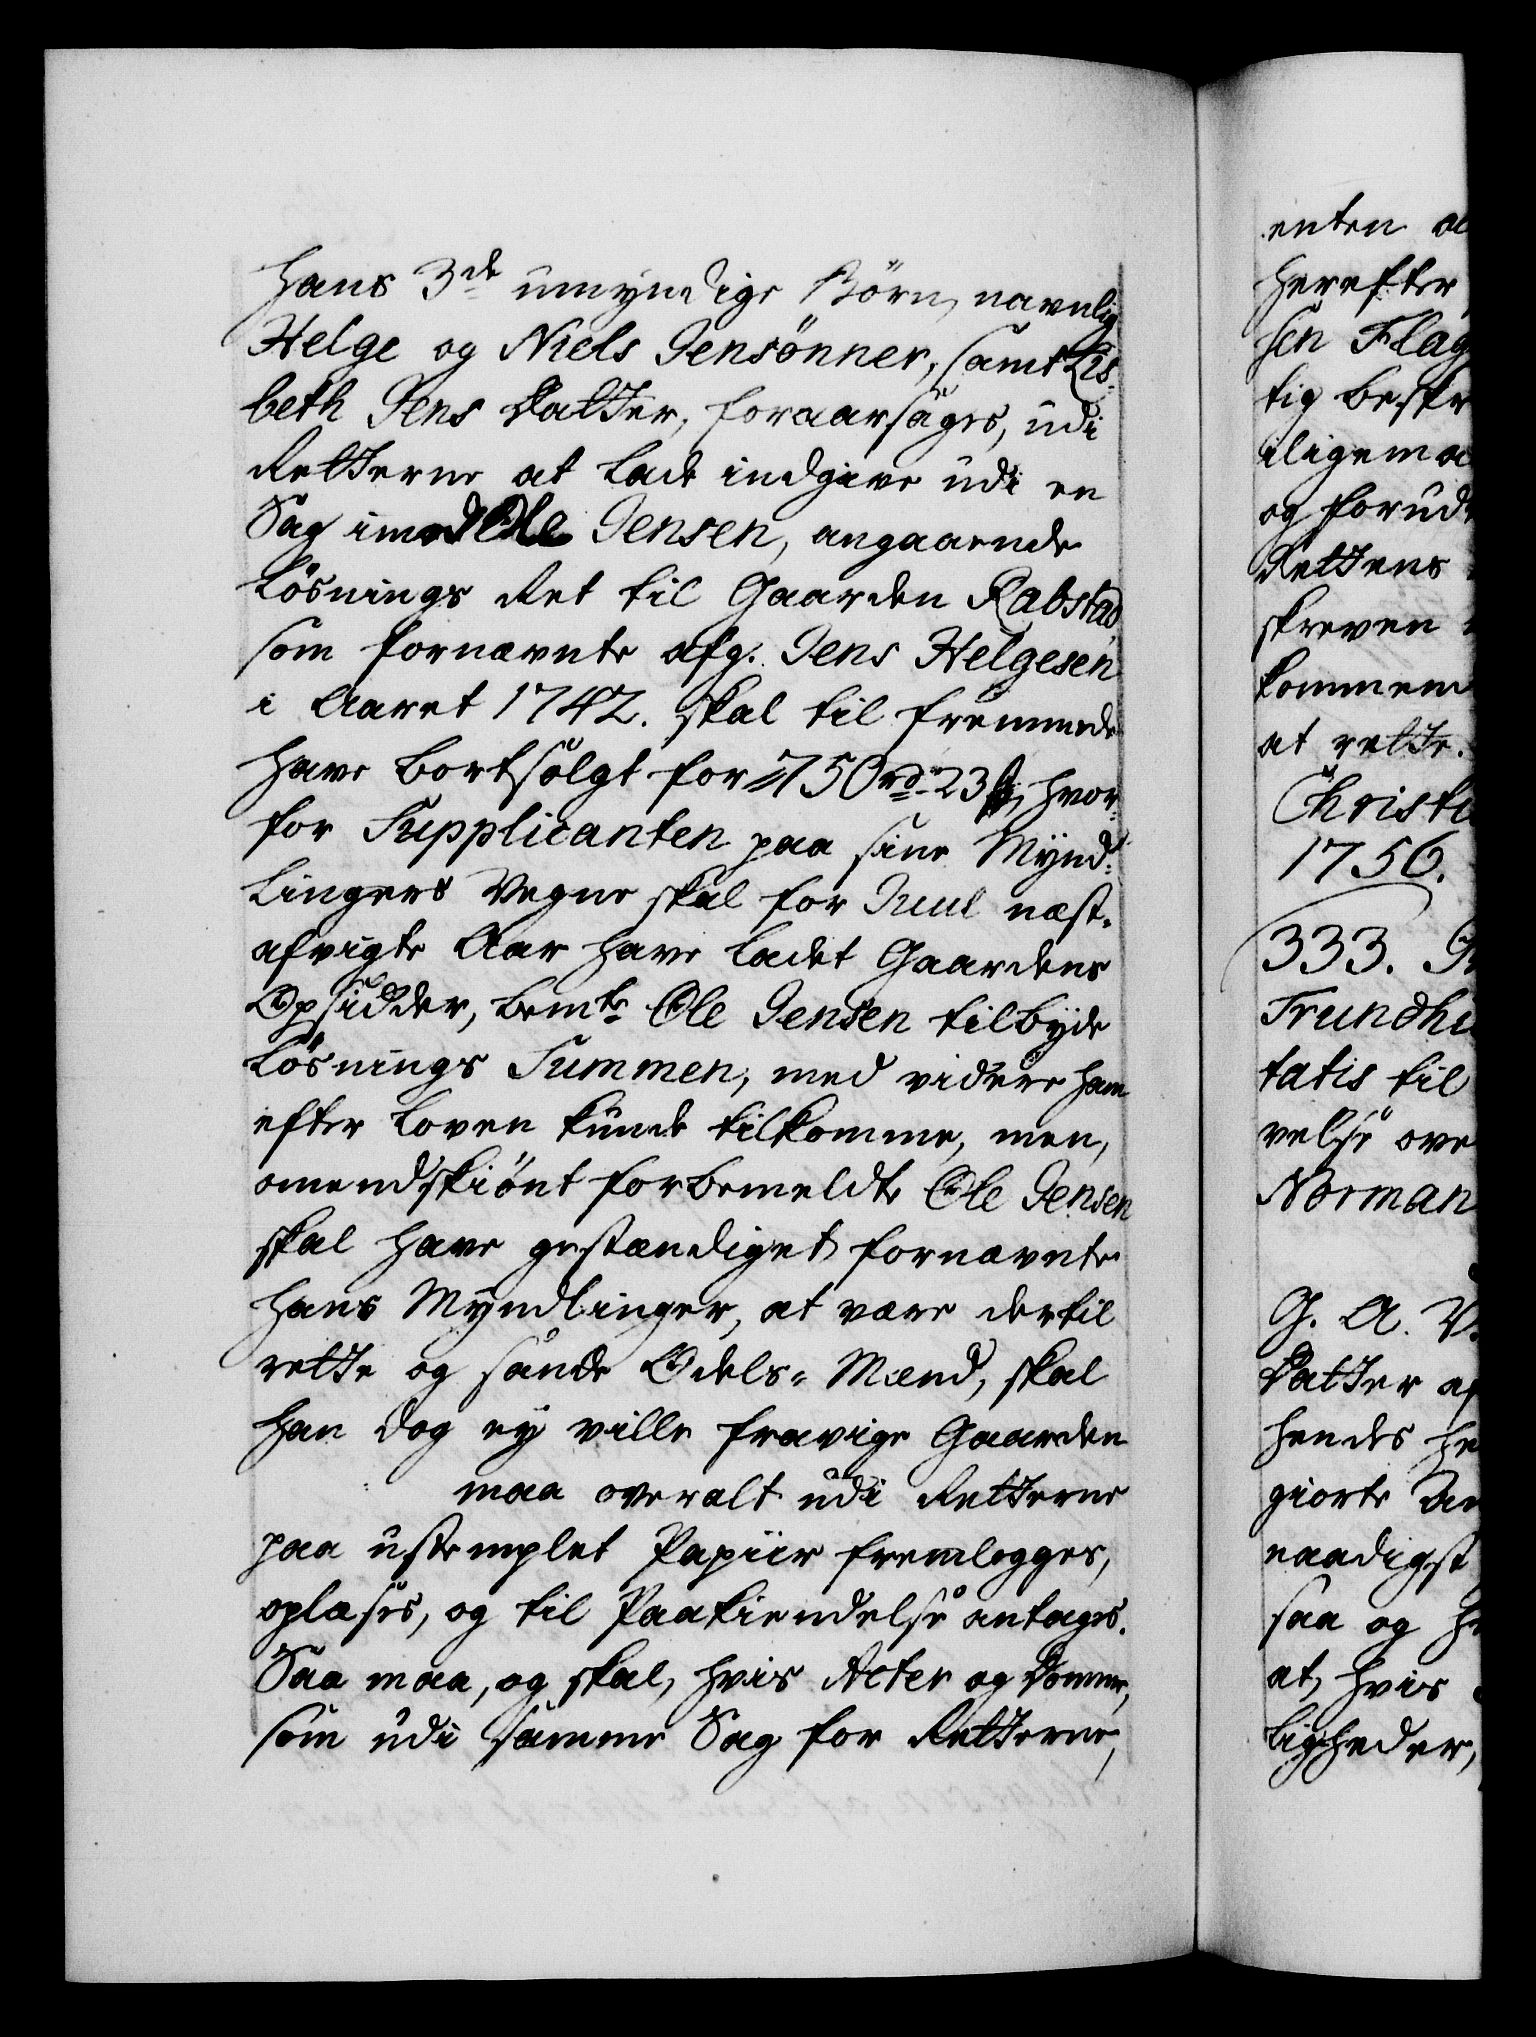 hans 3de umyndige Börn, navnlig
Helge og Niels Jensönner, samt Lis-
beth Jens Datter, foraarsages, udi
Retterne at lade indgive udi en
Sag imod Ole Jensen, angaaende
Lösnings Ret til Gaarden Rabstad
som fornævnte afg. Jens Helgesen
i Aaret 1742. skal til fremmede
have bortsolgt for 750 rd. 23 s, hvor-
for Supplicanten paa sine Mynd-
lingers Vegne skal for Juul næst-
afvigte Aar have ladet Gaardens
Opsidder, bemte Ole Jensen tilbyde
Lösnings Summen, med videre ham
efter Loven kunde tilkomme, men,
omendskiönt forbemeldte Ole Jensen
skal have gestændiget fornævnte
hans Myndlinger, at være dertil
rette og sande Odels-Mænd, skal
han dog ey ville fravige Gaarden
maa overalt udi Retterne
paa ustemplet Papiir fremlegges,
oplæses, og til Paakiendelse antages.
Saa maa, og skal, hvis Acter og Domme,
som udi samme Sag for Retterne,
enten
herefter
sen Flag
tig beskr
iligemaa
og forud
Rettens
skreven
kommen
at rette.
Christi
1756.
333.
Trundhi
tatis til
velse ove
Norman
G. A. V.
Datter af
hendes
giorte An
naadigst
saa og
at, hvis
ligheder,